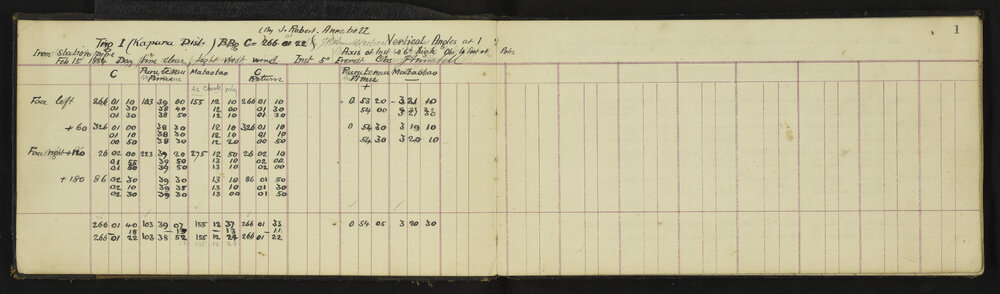 (By J. Robert. Annabell
1
Trig I (Kapara Dist.) C = 266 01 22 Vertical Angles at 1
Iron Station Axis of Inst
Feb 15 Day fine clear, light west wind Inst 5" Everest Obs. J Annabell
C Mataotao C Return
+ −
As Check only
Face left 266 01 10 103 39 00 155 12 10 266 01 10 + 0 53 20 − 3 21 10
01 30 38 40 12 00 01 30 54 00
01 30 38 50 12 10 01 30 3 21 30
+ 60 326 01 00 38 30 12 10 326 01 10 0 54 30 3 19 10
01 10 38 30 12 10 01 10
00 50 38 30 12 20 00 50 54 30 3 20 10
Face right + 120 26 02 00 223 39 20 275 12 50 26 02 10
01 55 39 50 13 10 02 00
01 50 39 50 13 10 02 00
+ 180 86 02 30 39 30 13 10 86 01 50
02 10 39 35 13 10 01 30
02 30 39 30 13 00 01 50
266 01 40 103 39 07 155 12 37 266 01 33 0 54 05 3 20 30
− 18 − 13 − 11
266 01 22 103 38 52 155 12 24 266 01 22
155 12 24